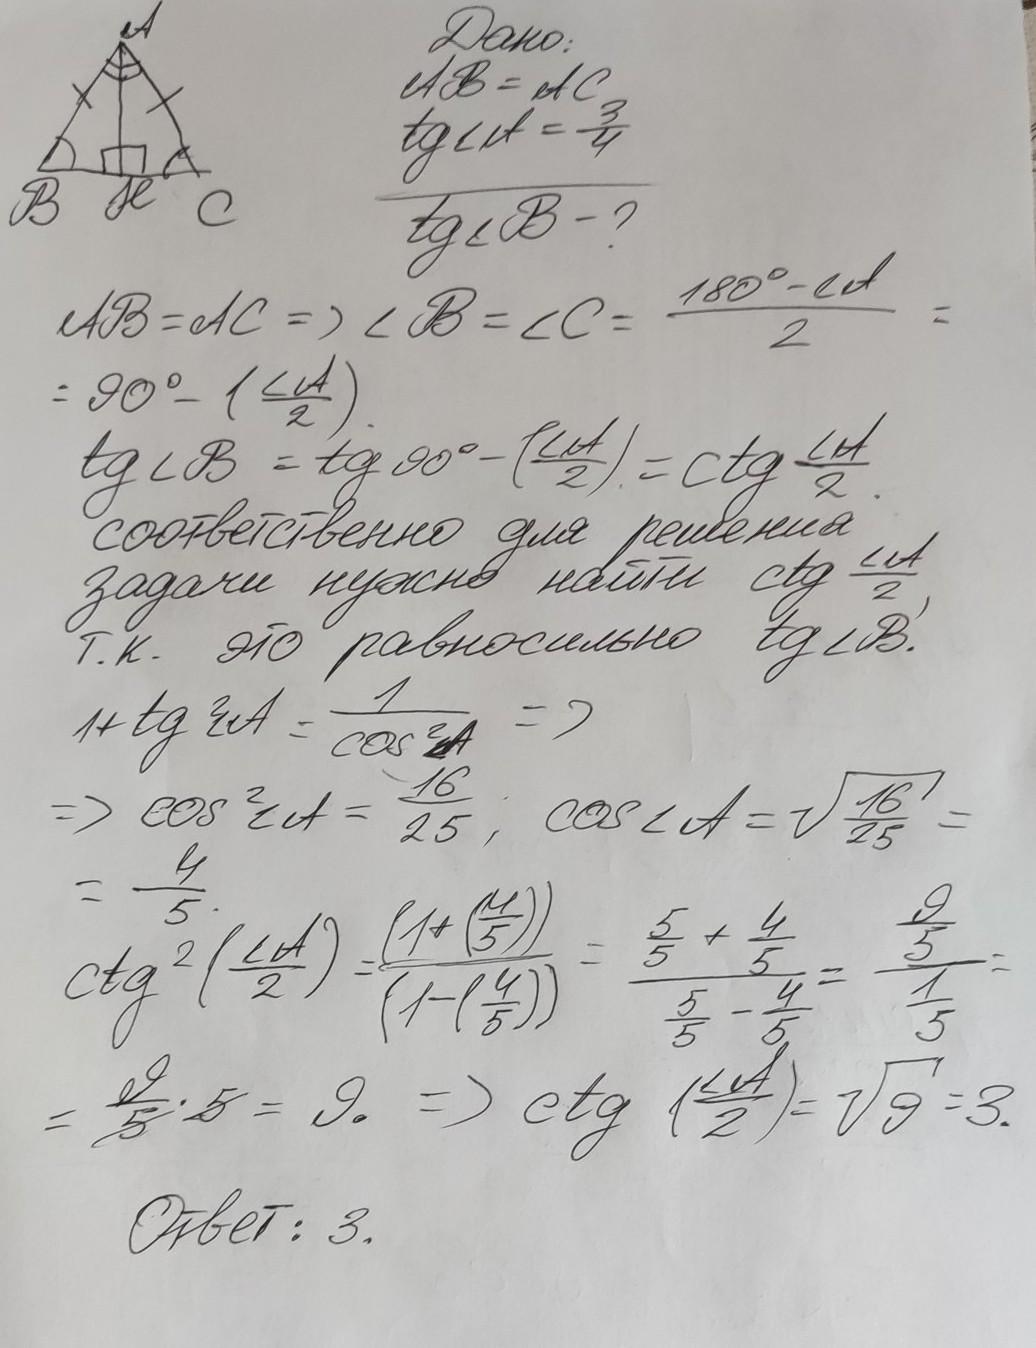 A
B H C
Дано:
AB = AC
tg∠A = 3/4
tg∠B - ?
AB = AC => ∠B = ∠C = (180° - ∠A)/2 =
= 90° - (∠A/2).
tg∠B = tg 90° - (∠A/2) = ctg ∠A/2.
соответственно для решения
задачи нужно найти ctg ∠A/2,
т.к. это равносильно tg∠B.
1 + tg²∠A = 1/cos²∠A =>
=> cos²∠A = 16/25; cos∠A = √(16/25) =
= 4/5.
ctg²(∠A/2) = (1+(4/5))/(1-(4/5)) = (5/5 + 4/5)/(5/5 - 4/5) = (9/5)/(1/5) =
= 9/5 · 5 = 9. => ctg (∠A/2) = √9 = 3.
Ответ: 3.